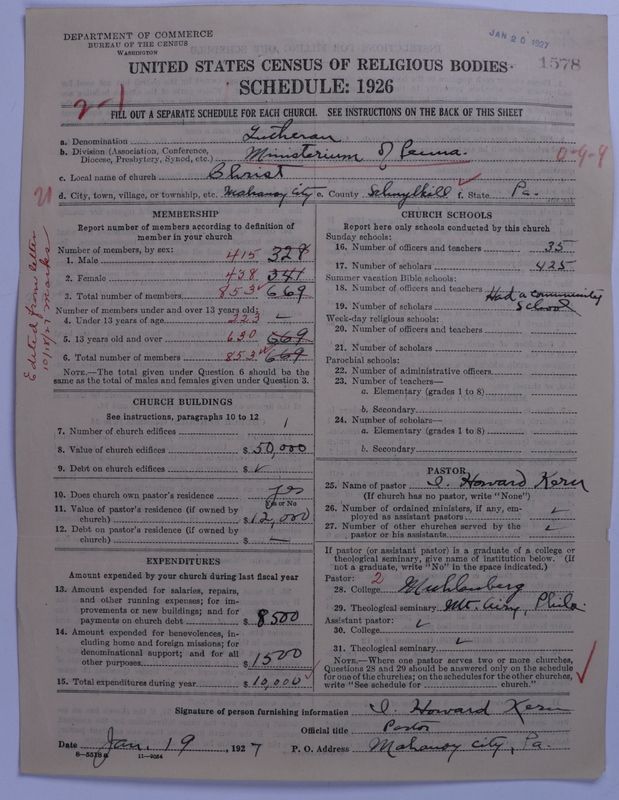 DEPARTMENT OF COMMERCE
BUREAU OF THE CENSUS
WASHINGTON
JAN 20 1927
1578
UNITED STATES CENSUS OF RELIGIOUS BODIES
SCHEDULE: 1926
2-1
FILL OUT A SEPARATE SCHEDULE FOR EACH CHURCH. SEE INSTRUCTIONS ON THE BACK OF THIS SHEET
a. Denomination Lutheran
b. Division (Association, Conference, Diocese, Presbytery, Synod, etc.) Ministerium of Penna. 0-9-9
c. Local name of church Christ
d. City, town, village, or township, etc. Mahanoy City e. County Schuylkill f. State Pa.
Edited from letter 10/18/27
MEMBERSHIP
Report number of members according to definition of member in your church
Number of members, by sex:
1. Male 415 328
2. Female 438 341
3. Total number of members 853 669
Number of members under and over 13 years old:
4. Under 13 years of age 223
5. 13 years old and over 630 669
6. Total number of members 853 669
NOTE.—The total given under Question 6 should be the same as the total of males and females given under Question 3.
CHURCH BUILDINGS
See instructions, paragraphs 10 to 12
7. Number of church edifices 1
8. Value of church edifices $ 50,000
9. Debt on church edifices $
10. Does church own pastor's residence yes
Yes or No
11. Value of pastor's residence (if owned by church) $ 12,000
12. Debt on pastor's residence (if owned by church) $ —
EXPENDITURES
Amount expended by your church during last fiscal year
13. Amount expended for salaries, repairs, and other running expenses; for improvements or new buildings; and for payments on church debt $ 8500
14. Amount expended for benevolences, including home and foreign missions; for denominational support; and for all other purposes $ 1500
15. Total expenditures during year $ 10,000
CHURCH SCHOOLS
Report here only schools conducted by this church
Sunday schools:
16. Number of officers and teachers 35
17. Number of scholars 425
Summer vacation Bible schools:
18. Number of officers and teachers Had a community
19. Number of scholars School
Week-day religious schools:
20. Number of officers and teachers
21. Number of scholars
Parochial schools:
22. Number of administrative officers
23. Number of teachers—
a. Elementary (grades 1 to 8)
b. Secondary
24. Number of scholars—
a. Elementary (grades 1 to 8)
b. Secondary
PASTOR
25. Name of pastor I. Howard Kern
(If church has no pastor, write "None")
26. Number of ordained ministers, if any, employed as assistant pastors
27. Number of other churches served by the pastor or his assistants
If pastor (or assistant pastor) is a graduate of a college or theological seminary, give name of institution below. (If not a graduate, write "No" in the space indicated.)
Pastor: 2
28. College Muhlenberg
29. Theological seminary Mt. Airy, Phila.
Assistant pastor:
30. College
31. Theological seminary
NOTE.—Where one pastor serves two or more churches, Questions 28 and 29 should be answered only on the schedule for one of the churches; on the schedules for the other churches, write "See schedule for church."
Signature of person furnishing information I. Howard Kern
Official title Pastor
Date Jan. 19, 1927 P. O. Address Mahanoy City, Pa.
8-5518a 11-9064